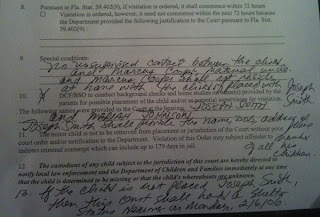 8. Pursuant to Fla. Stat. 39.402(9), if visitation is ordered, it shall commence within 72 hours
Visitation is ordered, however, it need not commence within the next 72 hours because
the Department provided the following justification to the Court pursuant to Fla. Stat.
39.402(9)
9. Special conditions:
No unsupervised contact between the child
and Marcus Cooper maternal uncle
and Marcus Cooper shall not reside
at home with the child if placed with Joseph
10. DCF/BSO to conduct background checks and home studies on Smith
parents for possible placement of the child and/or as potential supervisors for visitation.
The following names were provided to the Court at the hearing: JOSEPH SMITH
and MARIAH JOHNSON
Joseph Smith shall provide the name, DOB, address
11. The minor is not to be removed from placement or jurisdiction of the Court without prior
court order and/or notification to the Department. Violation of this Order may subject offender to
indirect criminal contempt which can include up to 179 days in jail.
of all his
children.
12. The custodians of any child subject to the jurisdiction of this court are hereby directed to
notify local law enforcement and the Department of Children and Families immediately at any time
that the child is determined to be missing or that the child's whereabouts are unknown.
13. If the child is not placed Joseph Smith
then this court shall hold a Shelter
Status Hearing on Monday, 2/6/06.